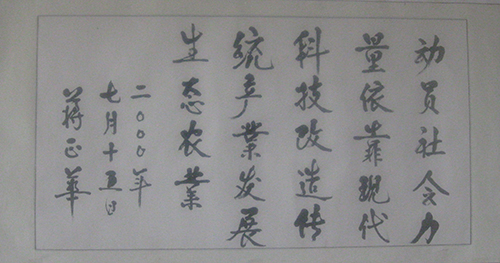 动员社会力
量依靠现代
科技改造传
统产业发展
生态农业
二000年
七月十五日
蒋正华